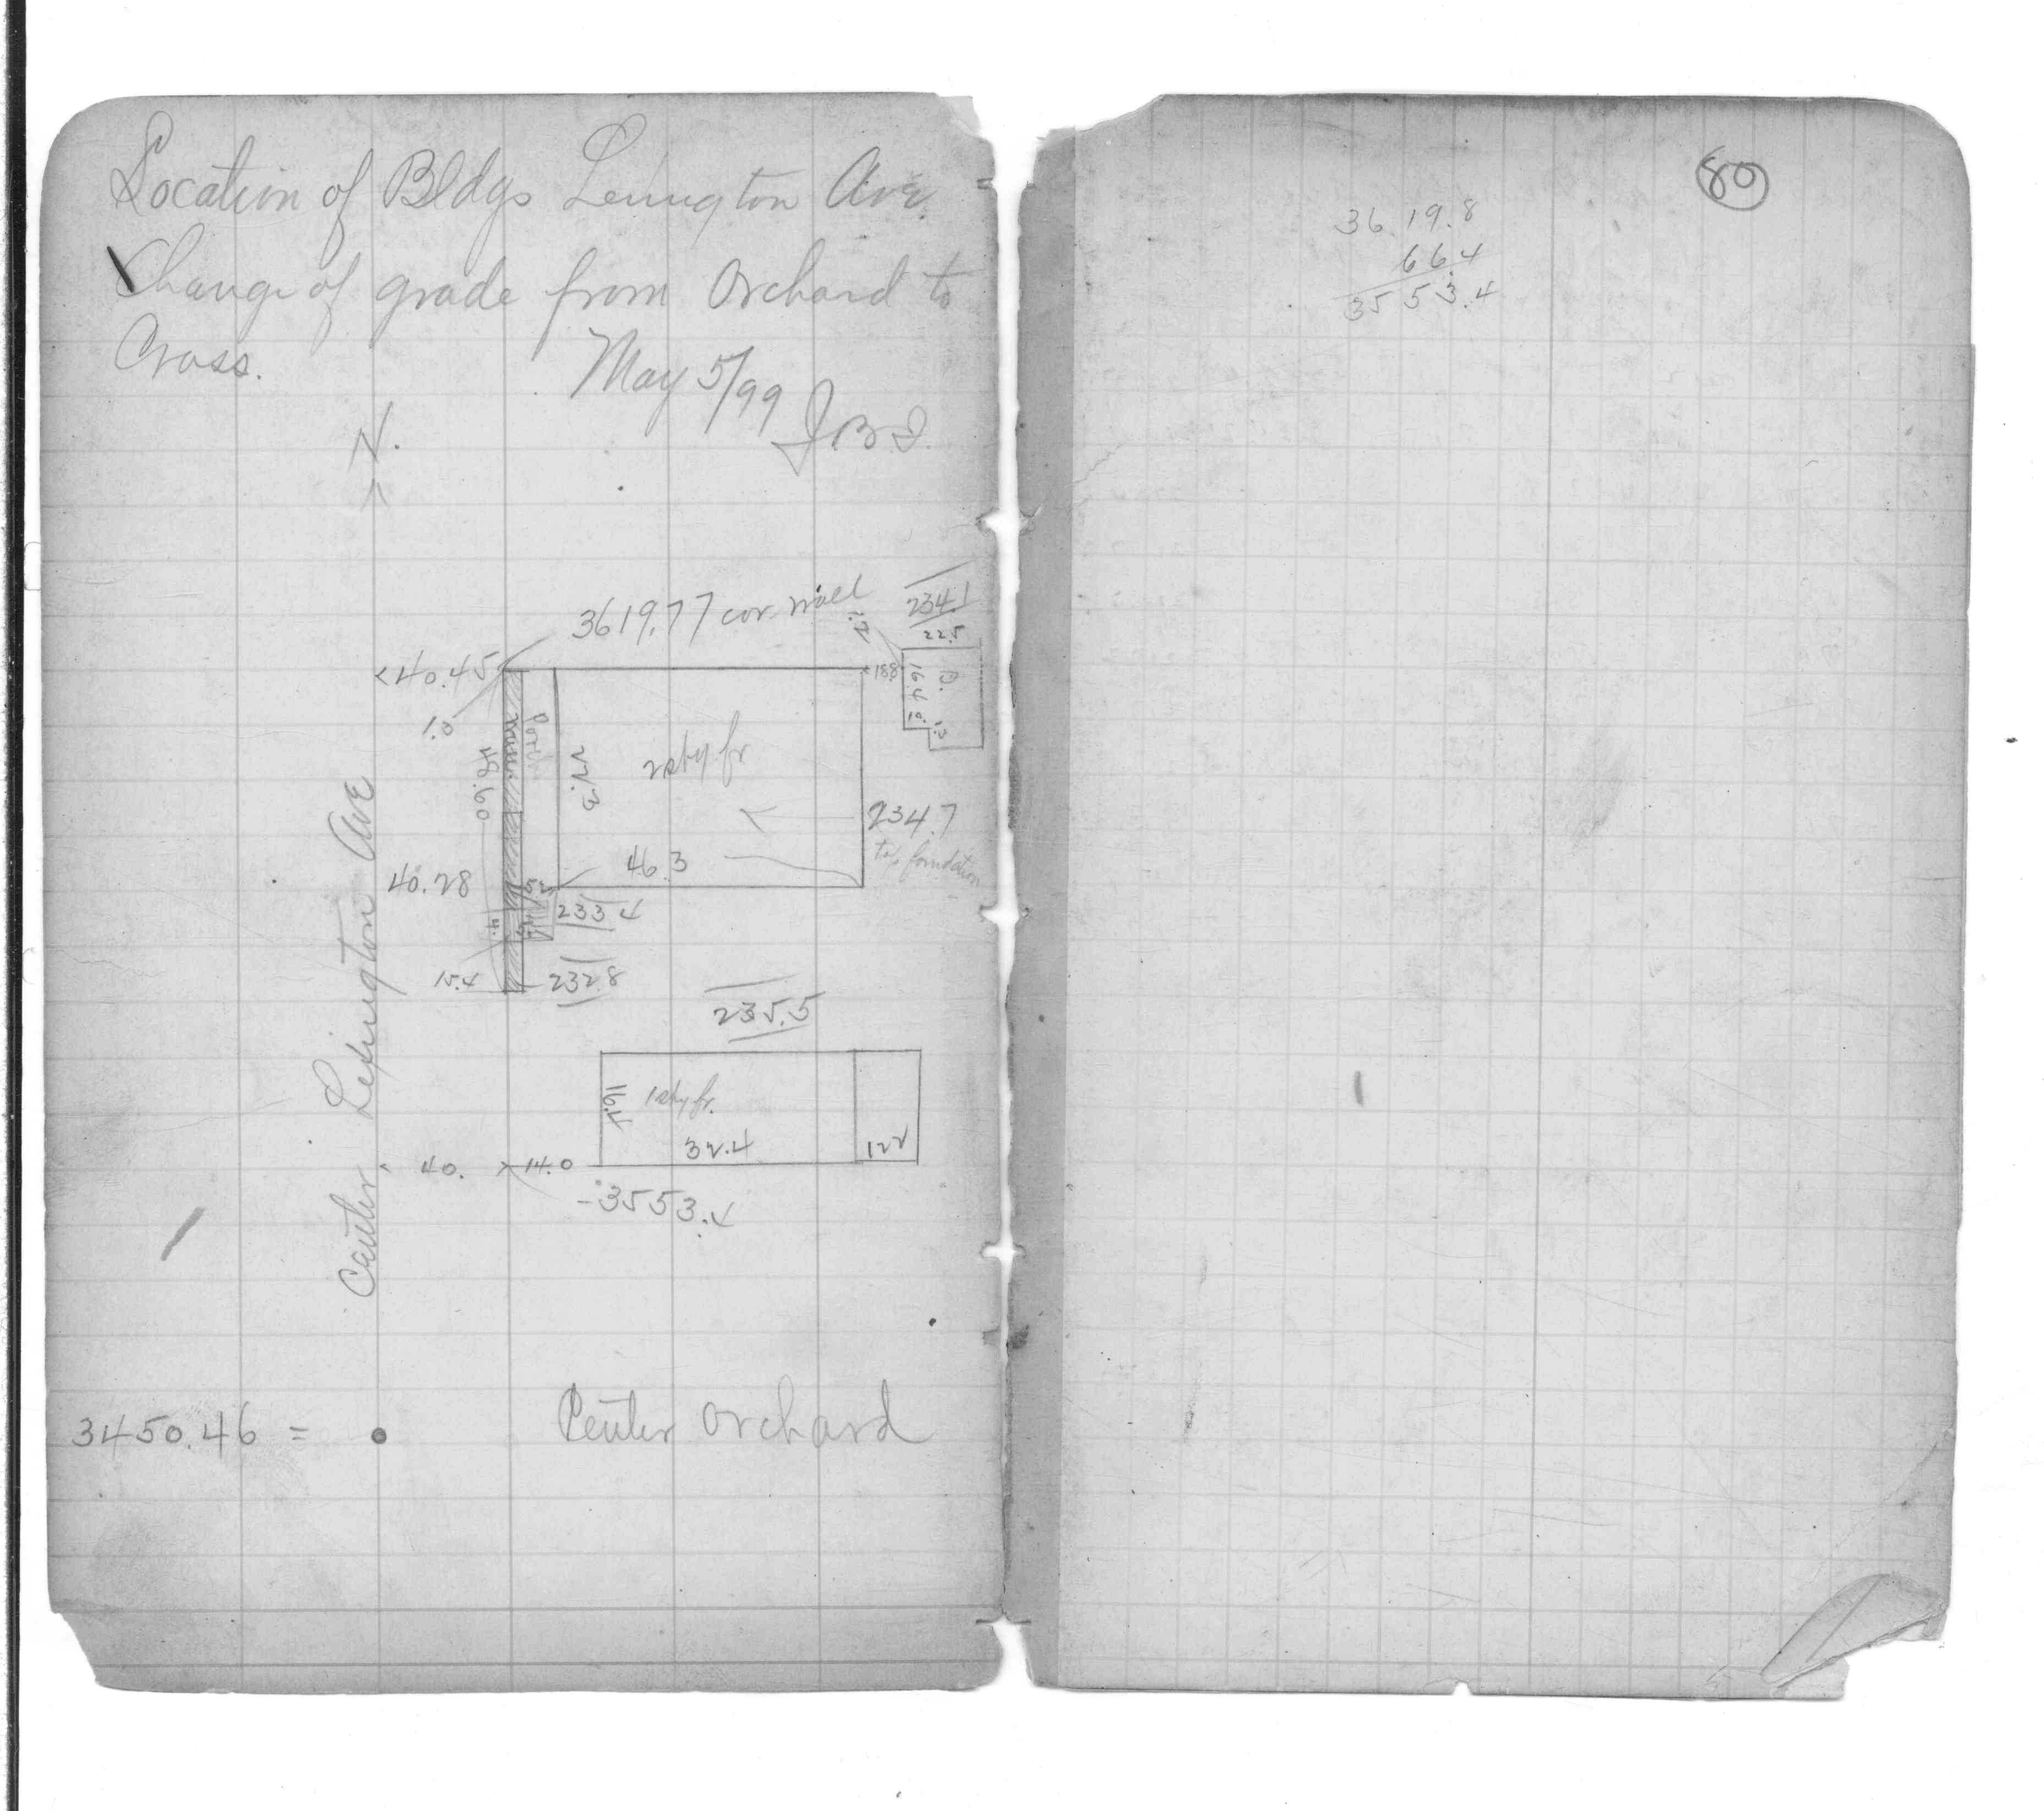 Location of Bldgs Lexington Ave.
Change of grade from Orchard to
Cross.
May 5/99
N.
3619.77 cor. wall
234.1
22.5
<40.45
188
1.0
Porch
48.60
27.3
2 sty fr
16.4
B.
10.
234.7
to foundation
40.28
46.3
233.4
15.4
232.8
235.5
16.2
1 sty fr.
32.4
12.2
40.
14.0
3553.4
Center Lexington Ave
3450.46 =
Center Orchard
80
3619.8
66.4
3553.4